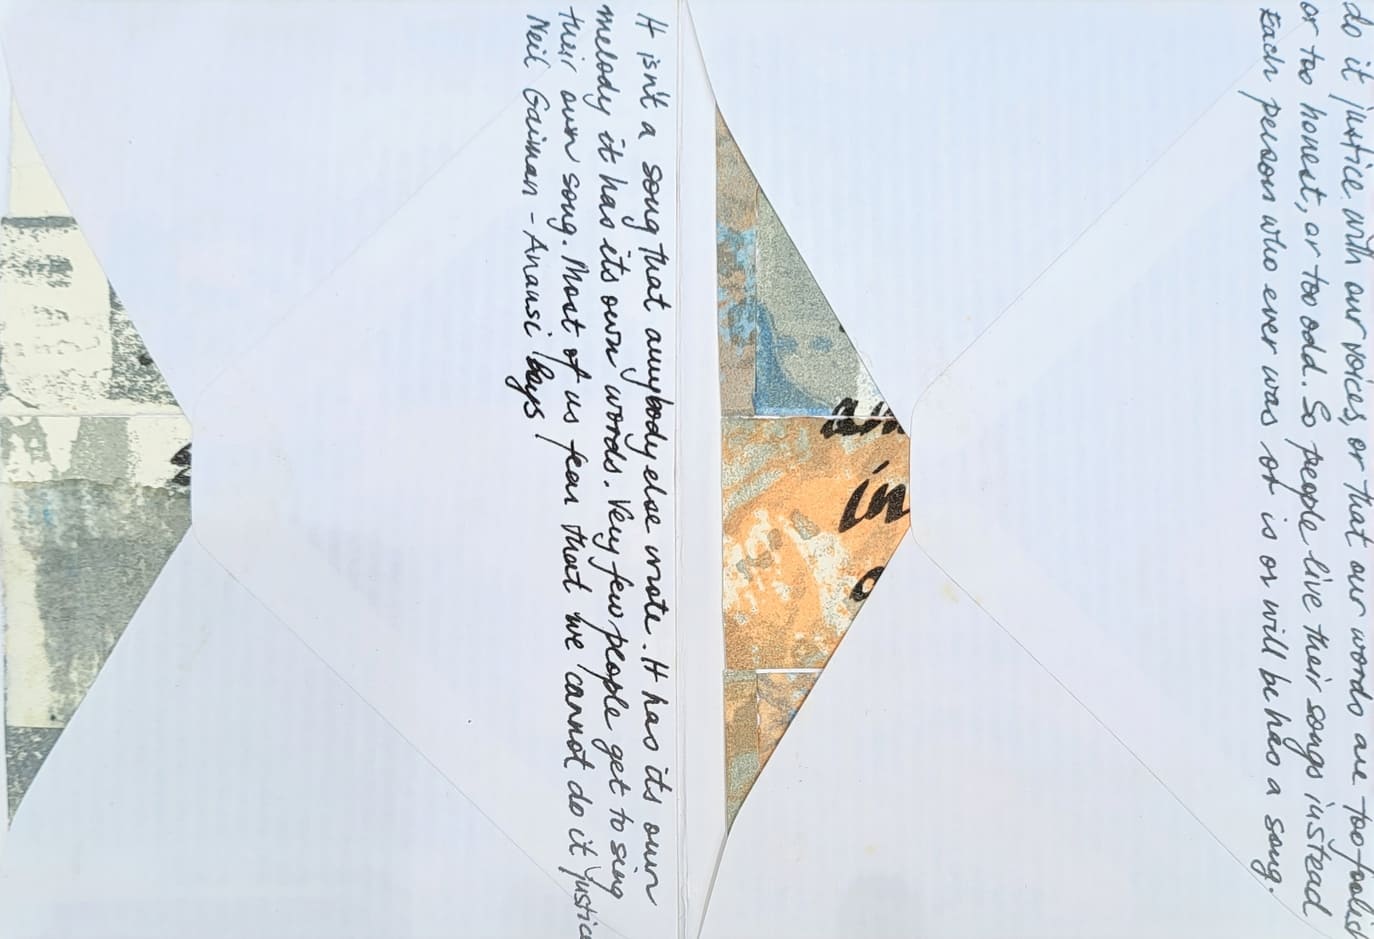 do it justice with our voices, or that our words are too foolish
or too honest, or too odd. So people live their songs instead
Each person who ever was or is or will be has a song.
in
It isn't a song that anybody else wrote. It has its own
melody it has its own words. Very few people get to sing
their own song. Most of us fear that we cannot do it justice
Neil Gaiman - Anansi Boys